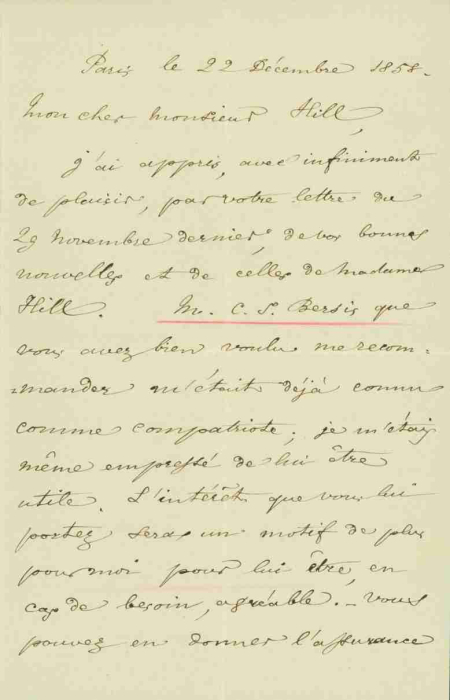 Paris le 22 Décembre 1858.
Mon cher monsieur Hill,
J'ai appris, avec infiniment
de plaisir, par votre lettre du
29 novembre dernier, de vos bonnes
nouvelles et de celles de Madame
Hill. M. C. S. Bersis que
vous avez bien voulu me recom-
-mander m'était déjà connu
comme compatriote ; je m'étais
même empressé de lui être
utile. L'intérêt que vous lui
portez sera un motif de plus
pour moi pour lui être, en
cas de besoin, agréable. - Vous
pouvez en donner l'assurance